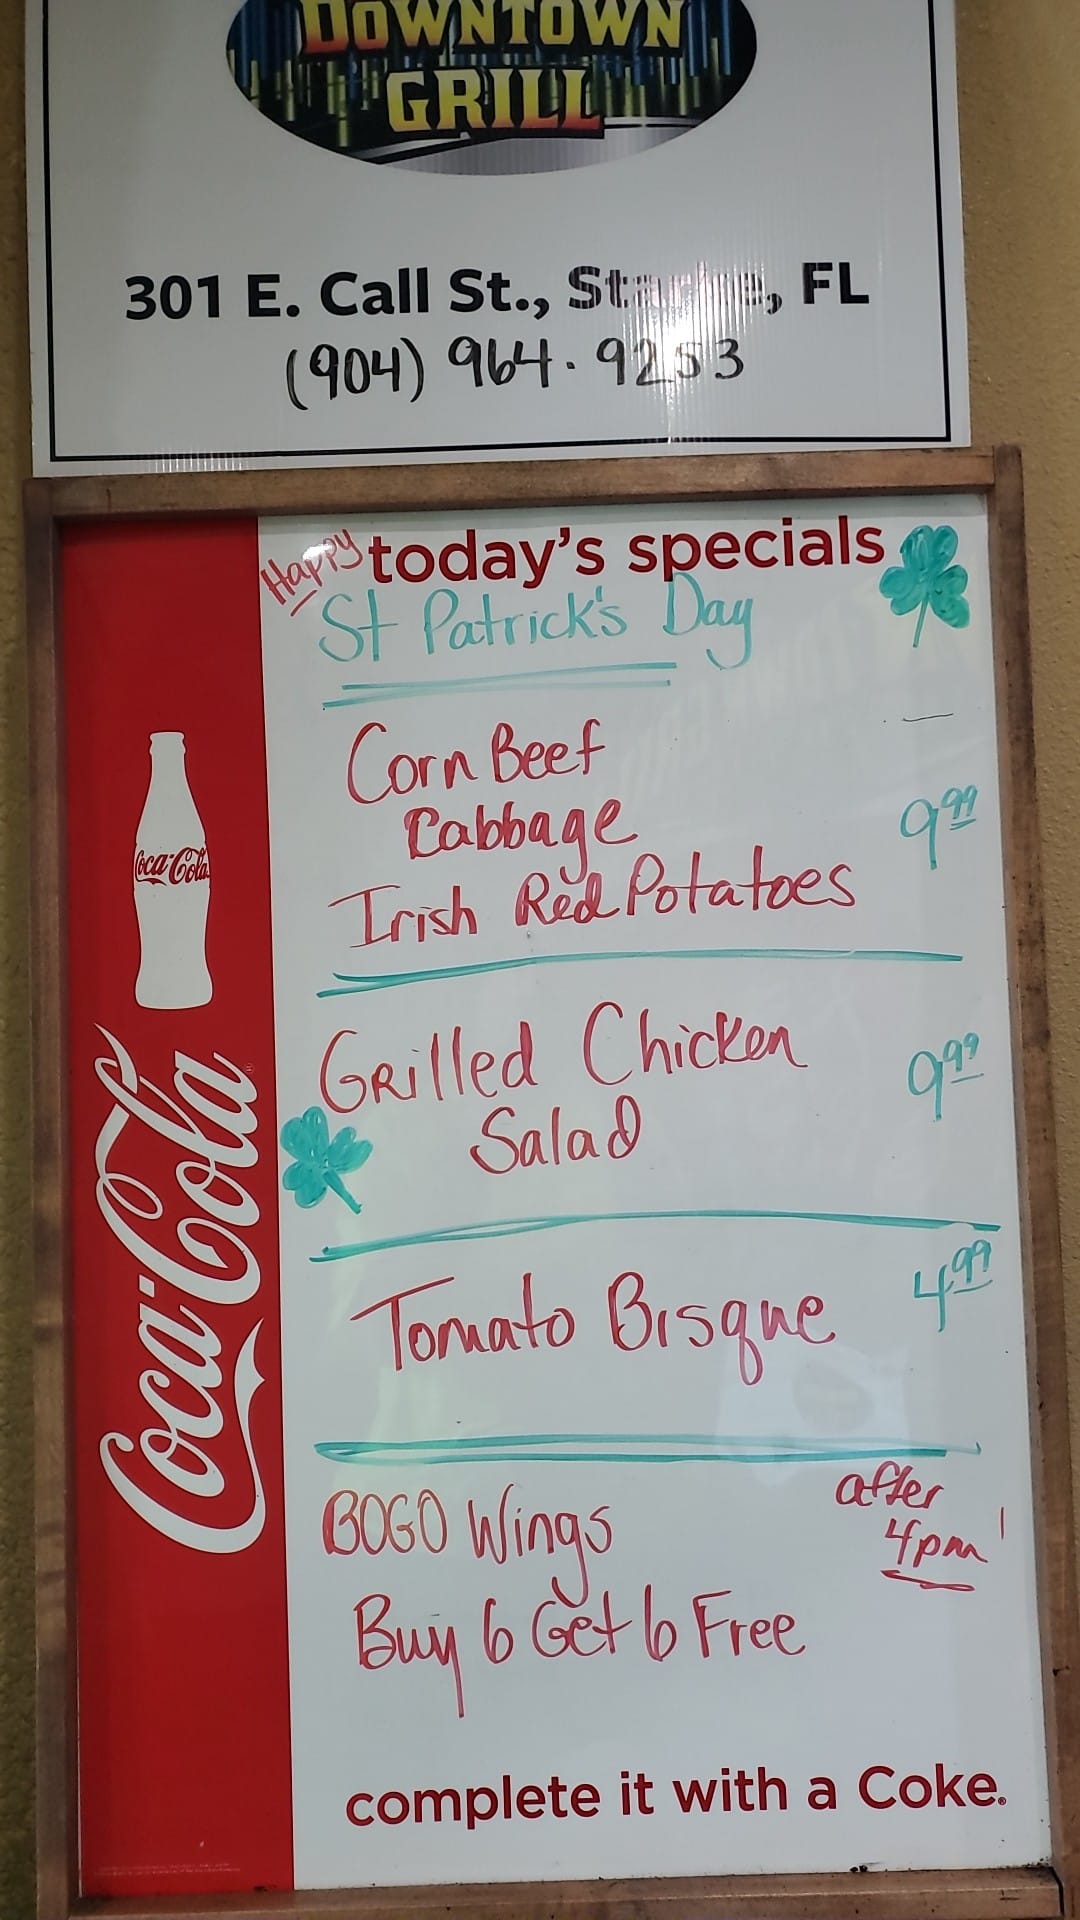 DOWNTOWN
GRILL
301 E. Call St., Starke, FL
(904) 964.9253
Happy today's specials
St Patrick's Day
Corn Beef
Cabbage
9.99
Irish Red Potatoes
Grilled Chicken
9.99
Salad
Tomato Bisque
4.99
BOGO Wings
after
4pm
Buy 6 Get 6 Free
complete it with a Coke.
Coca-Cola
Coca-Cola